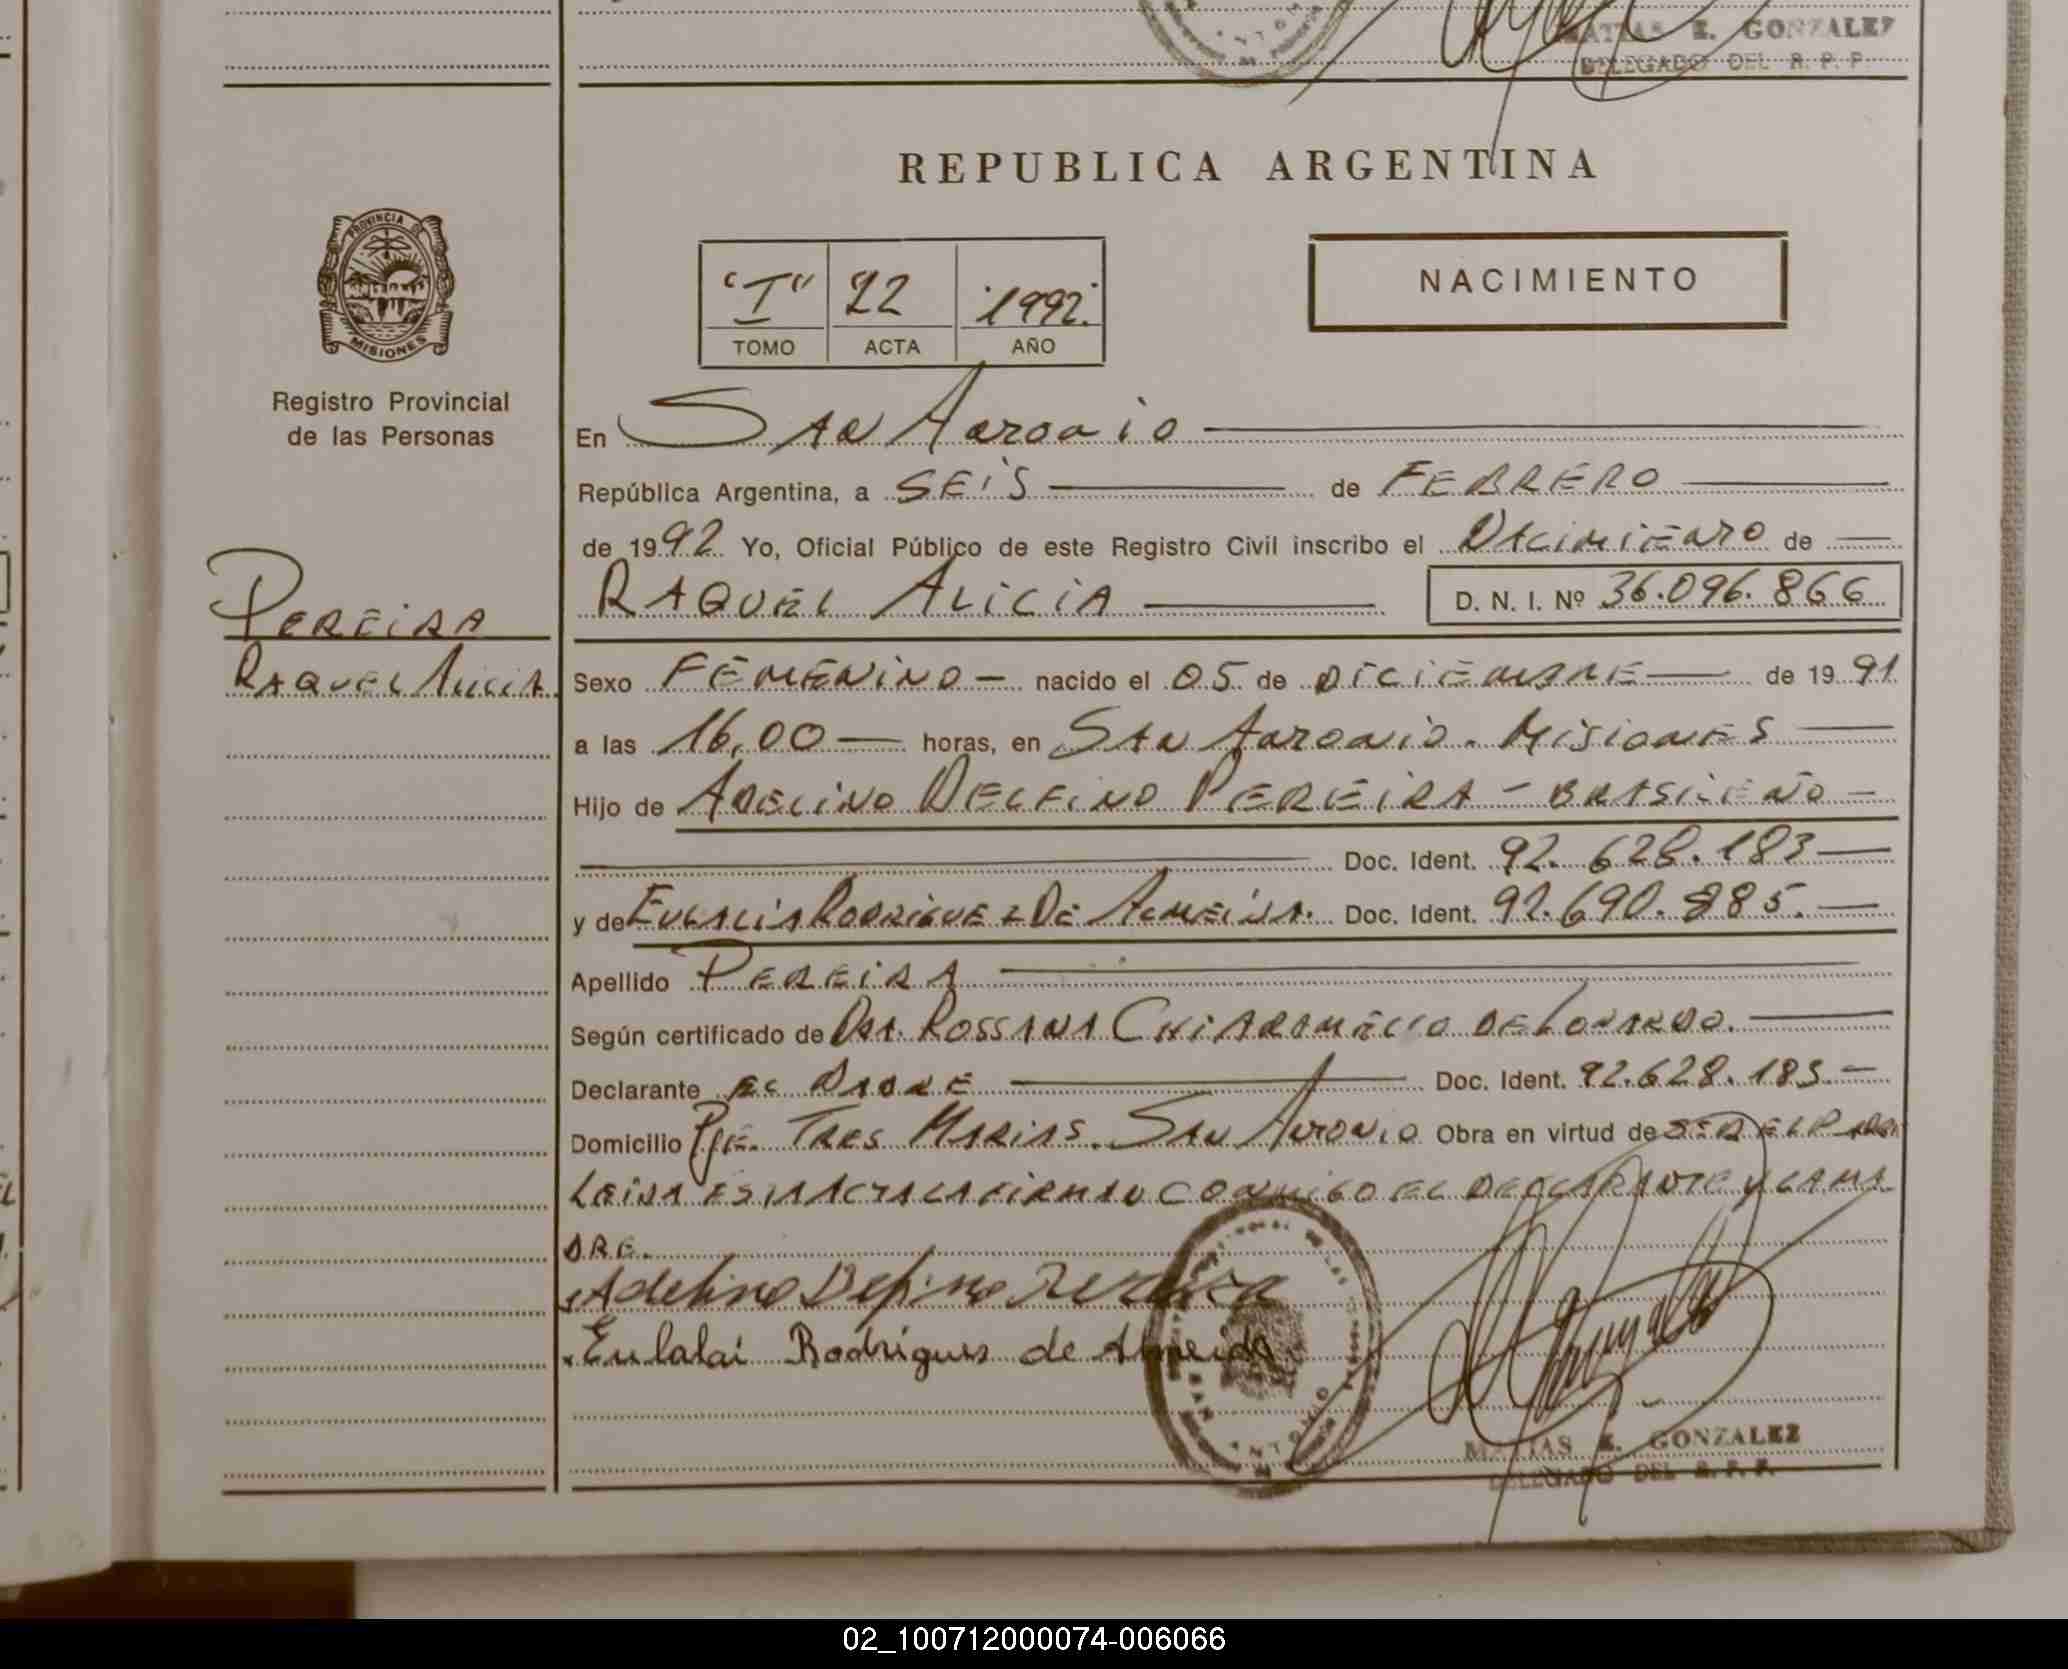 MATIAS E. GONZALEZ
DELEGADO DEL R. P. P.
REPUBLICA ARGENTINA
PROVINCIA DE
MISIONES
Registro Provincial
de las Personas
"I" 22 1992.
TOMO ACTA AÑO
NACIMIENTO
En San Antonio
República Argentina, a SEIS de FEBRERO
de 1992 Yo, Oficial Público de este Registro Civil inscribo el Nacimiento de
RAQUEL ALICIA D. N. I. Nº 36.096.866
PEREIRA
RAQUEL ALICIA.
Sexo FEMENINO - nacido el 05 de DICIEMBRE de 19 91
a las 16,00 horas, en SAN Antonio. Misiones
Hijo de ADELINO DELFINO PEREIRA - BRASILEÑO -
Doc. Ident. 92.628.183
y de EULALIA RODRIGUEZ DE ALMEIDA. Doc. Ident. 92.690.885.
Apellido PEREIRA
Según certificado de DRA. ROSSANA CHIARAMELLO DE LONARDO.
Declarante EL PADRE Doc. Ident. 92.628.183.
Domicilio Pje. TRES MARIAS. SAN ANTONIO Obra en virtud de SER EL PADRE
LEIDA ESTA ACTA LA FIRMAN CONMIGO EL DECLARANTE Y LA MA
DRE.
Adelino Delfino Pereira
Eulalai Rodrigues de Almeida
SAN ANTONIO
MATIAS E. GONZALEZ
DELEGADO DEL R. P. P.
02_100712000074-006066